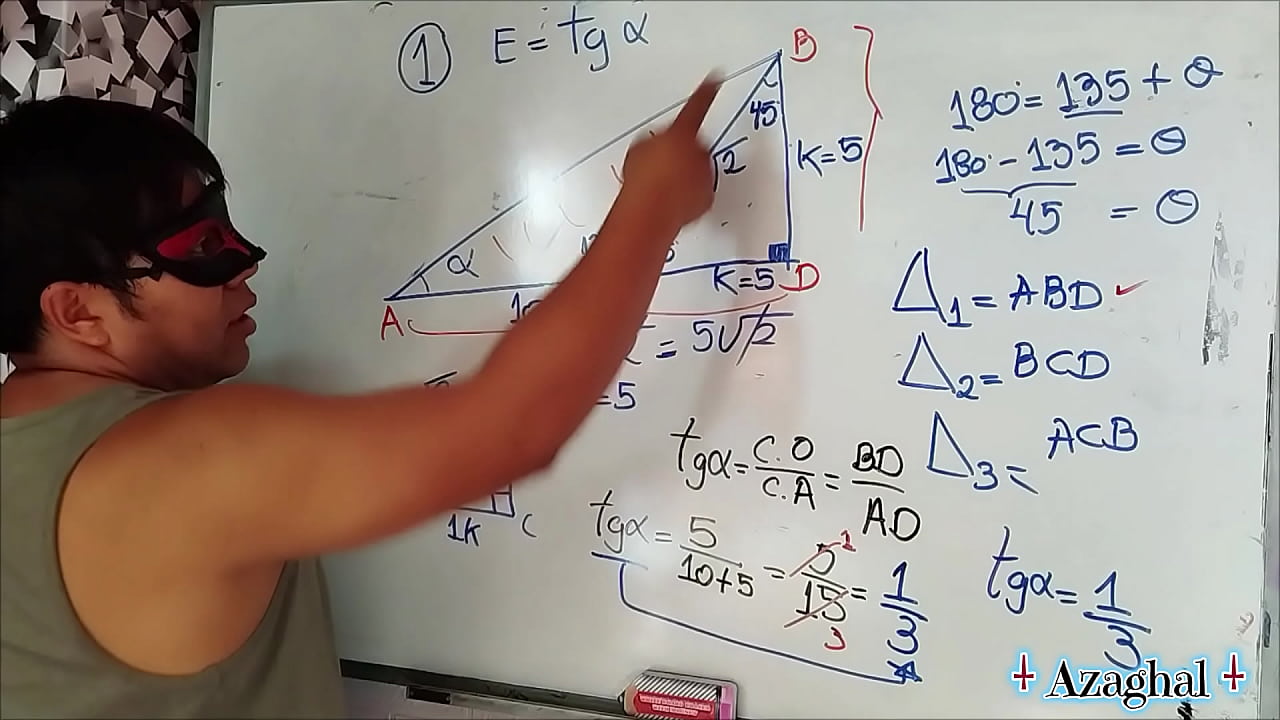 ① E = tg α
B
45
√2
K=5
α
K=5 D
A
10
= 5√2
=5
1K C
180° = 135 + θ
180° - 135 = θ
45 = θ
Δ1 = ABD ✓
Δ2 = BCD
Δ3 = ACB
tgα = C.O / C.A = BD / AD
tgα = 5 / 10+5 = 5 / 15 = 1 / 3
1
3
tgα = 1 / 3
Azaghal